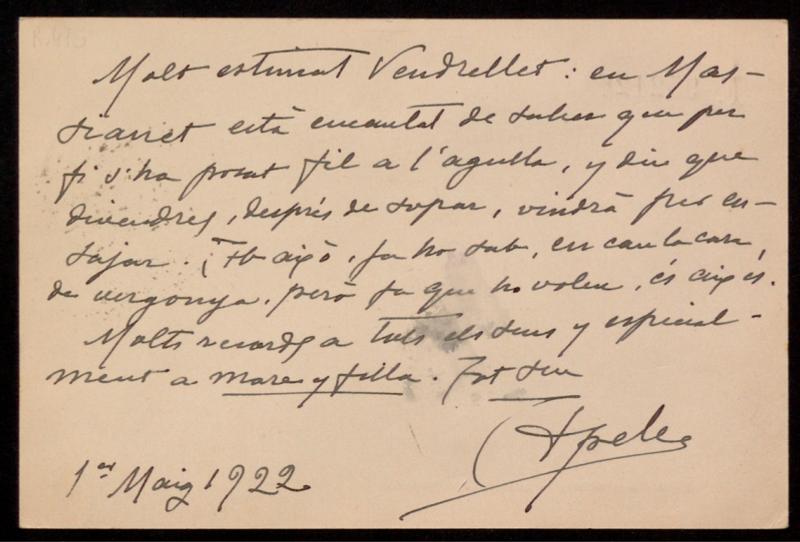 Molt estimat Vendrellet: en Mas-
siarret està encantat de saber que per
fi s'ha posat fil a l'agulla, y diu que
divendres, després de sopar, vindrà per en-
sajar. Tot això, ja ho sab, em cau la cara
de vergonya, però ja que ho volen, és així.
Molts recorts a tots els seus y especial-
ment a mare y filla. Tot seu
Apeles
1er Maig 1922